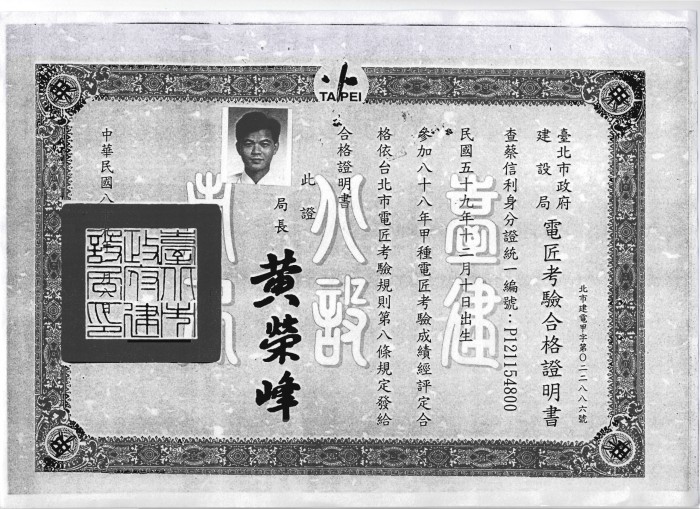 TAIPEI
臺北市政府
建設局
電匠考驗合格證明書
北市建電甲字第〇二二八八六號
查蔡信利身分證統一編號：P121154800
民國五十九年十二月十日出生
參加八十八年甲種電匠考驗成績經評定合
格依台北市電匠考驗規則第八條規定發給
合格證明書
此證
局長
黃榮峰
中華民國八
臺北市
政府建
設局印